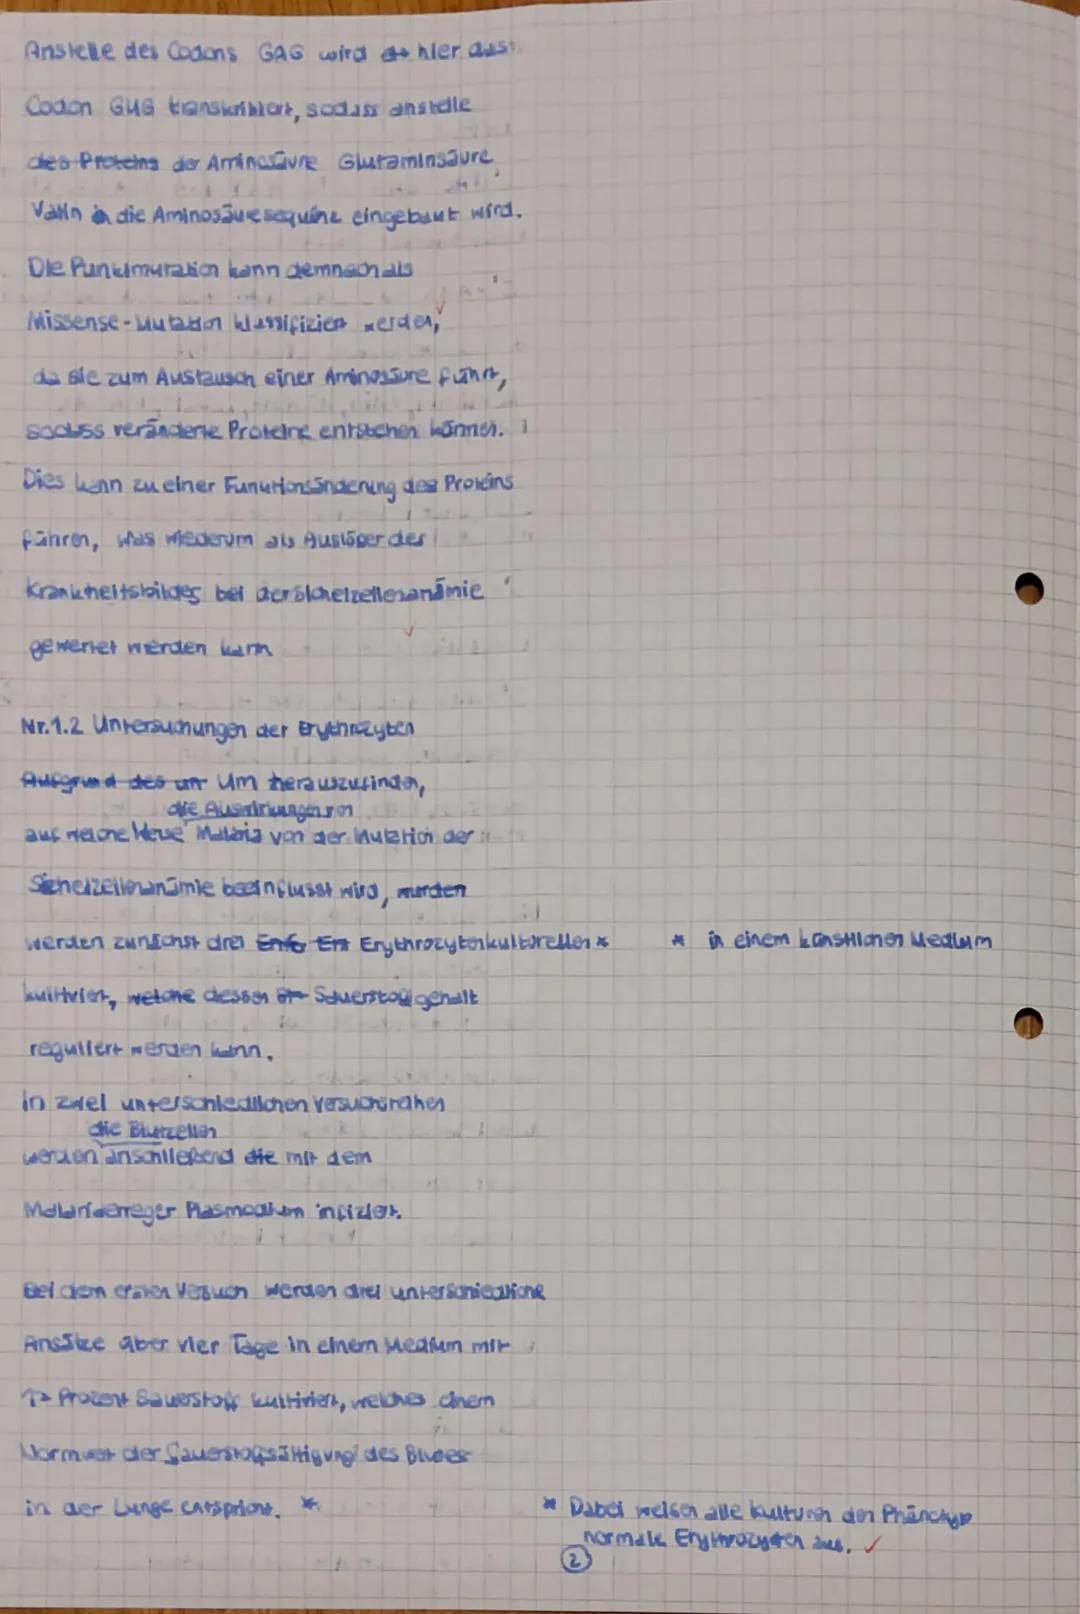 Anstelle des Codons GAG wird hier das
Codon GUG transkribiert, sodass anstelle
des Proteins der Aminosäure Glutaminsäure
Valin in die Aminosäuresequenz eingebaut wird.
Die Punktmutation kann demnach als
Missense-Mutation klassifiziert werden,
da sie zum Austausch einer Aminosäure führt,
sodass veränderte Proteine entstehen können.
Dies kann zu einer Funktionsänderung des Proteins
führen, was wiederum als Auslöser des
Krankheitsbildes bei der Sichelzellenanämie
gewertet werden kann
Nr.1.2 Untersuchungen der Erythrozyten
Aufgrund des Um herauszufinden,
die Auswirkungen von
auf welche Weise Malaria von der Mutation der
Sichelzellenanämie beeinflusst wird, wurden
werden zunächst drei Erythrozytenkulturellen * * in einem künstlichen Medium
kultiviert, welche dessen Sauerstoffgehalt
reguliert werden kann.
In zwei unterschiedlichen Versuchsreihen
die Blutzellen
werden anschließend die mit dem
Malariaerreger Plasmodium infiziert.
Bei dem ersten Versuch werden drei unterschiedliche
Ansätze über vier Tage in einem Medium mit
17 Prozent Sauerstoff kultiviert, welches einem
Normwert der Sauerstoffsättigung des Blutes
in der Lunge entspricht. *
* Dabei weisen alle Kulturen den Phänotyp
normale Erythrozyten aus.
2